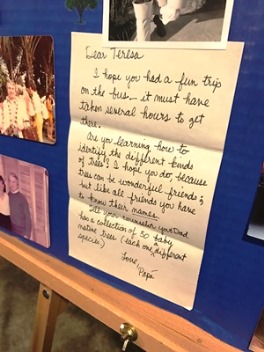 Dear Teresa
I hope you had a fun trip
on the bus... it must have
taken several hours to get
there.
Are you learning how to
identify the different kinds
of trees? I hope you do, because
trees can be wonderful friends,
but like all friends you have
to know their names.
Tell your counselor your Dad
has a collection of 50 baby
native trees (each one different
species)
Love,
Papa